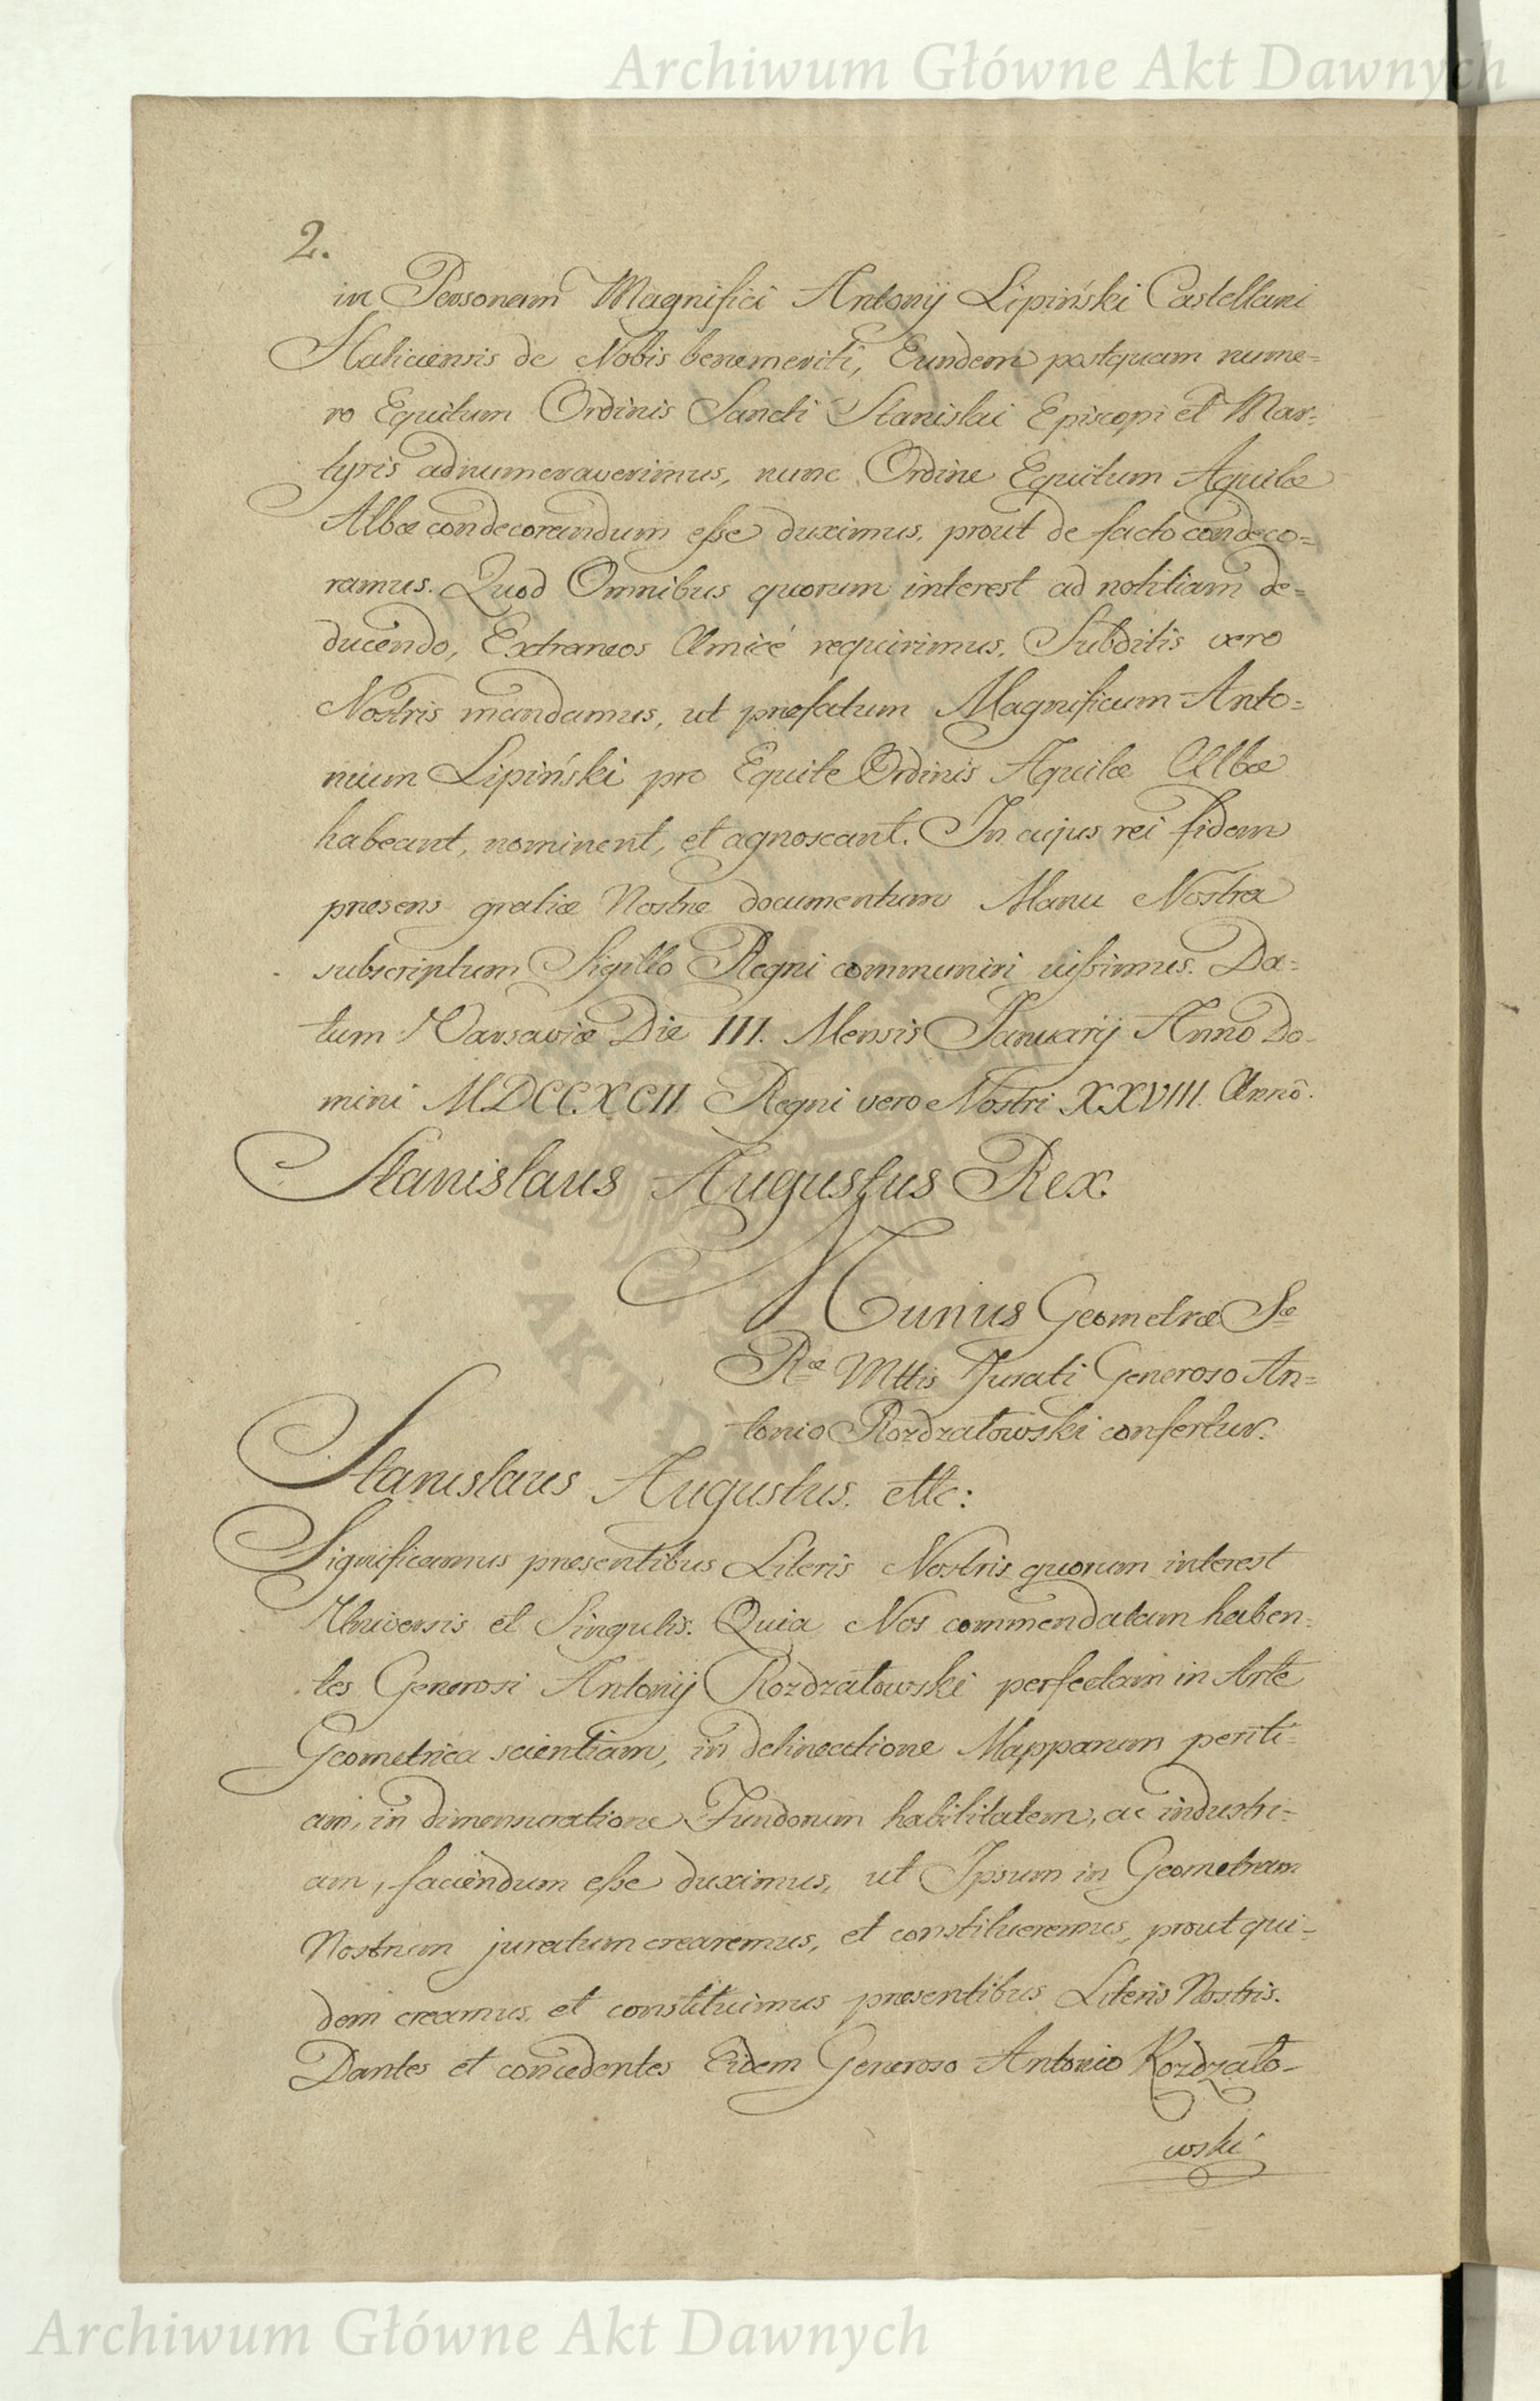 Archiwum Główne Akt Dawnych
2.
in Personam Magnifici Antonij Lipiński Castellani
Haliciensis de Nobis benemeriti, Eundem postquam nume=
ro Equitum Ordinis Sancti Stanislai Episcopi et Mar=
tyris adnumeraverimus, nunc Ordine Equitum Aquilæ
Albæ condecorandum esse duximus, prout de facto condeco=
ramus. Quod Omnibus quorum interest ad notitiam de=
ducendo, Extraneos Amicé requirimus, Subditis vero
Nostris mandamus, ut præfatum Magnificum Anto=
nium Lipiński pro Equite Ordinis Aquilæ Albæ
habeant, nominent, et agnoscant. In cujus rei fidem
præsens gratiæ Nostræ documentum Manu Nostra
subscriptum Sigillo Regni communiri jussimus. Da=
tum Varsaviæ Die III. Mensis Januarij Anno Do-
mini MDCCXCII Regni vero Nostri XXVIII. Annô.
Stanislaus Augustus Rex.
Munus Geometræ Sæ
Ræ Mttis Jurati Generoso An=
tonio Rozdzałowski confertur.
Stanislaus Augustus. ettc:
Significamus præsentibus Literis Nostris quorum interest
Universis et Singulis. Quia Nos commendatam haben=
tes Generosi Antonij Rozdzałowski perfectam in Arte
Geometrica scientiam, in delineatione Mapparum periti=
am, in dimensuratione Fundorum habilitatem, ac industri=
am, faciendum esse duximus, ut Ipsum in Geometram
Nostrum juratum crearemus, et constitueremus, prout qui=
dem creamus, et constituimus præsentibus Literis Nostris.
Dantes et concedentes Eidem Generoso Antonio Rozdzało-
wski
Archiwum Główne Akt Dawnych